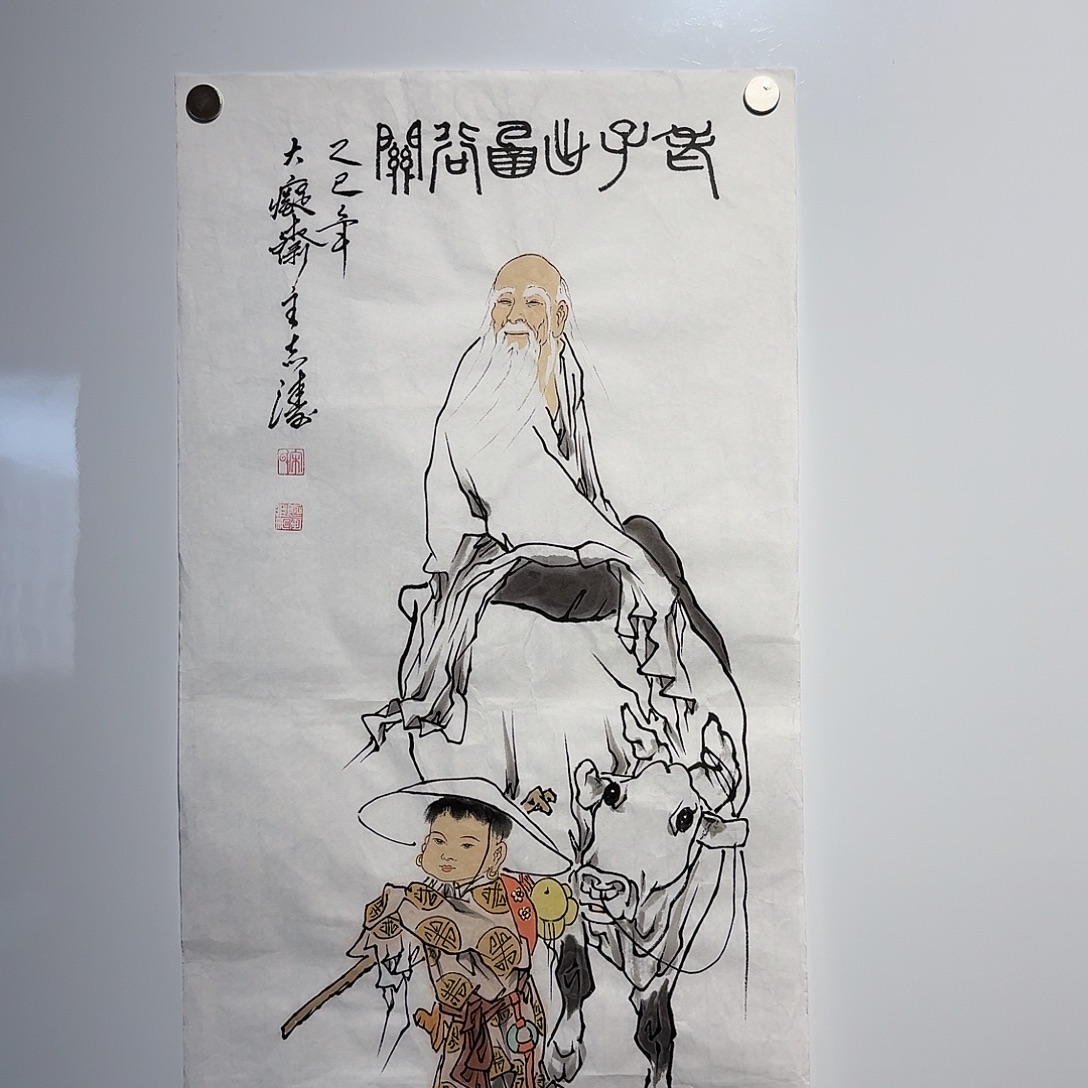 老子出函谷關
乙巳年
大癡齋主志濤